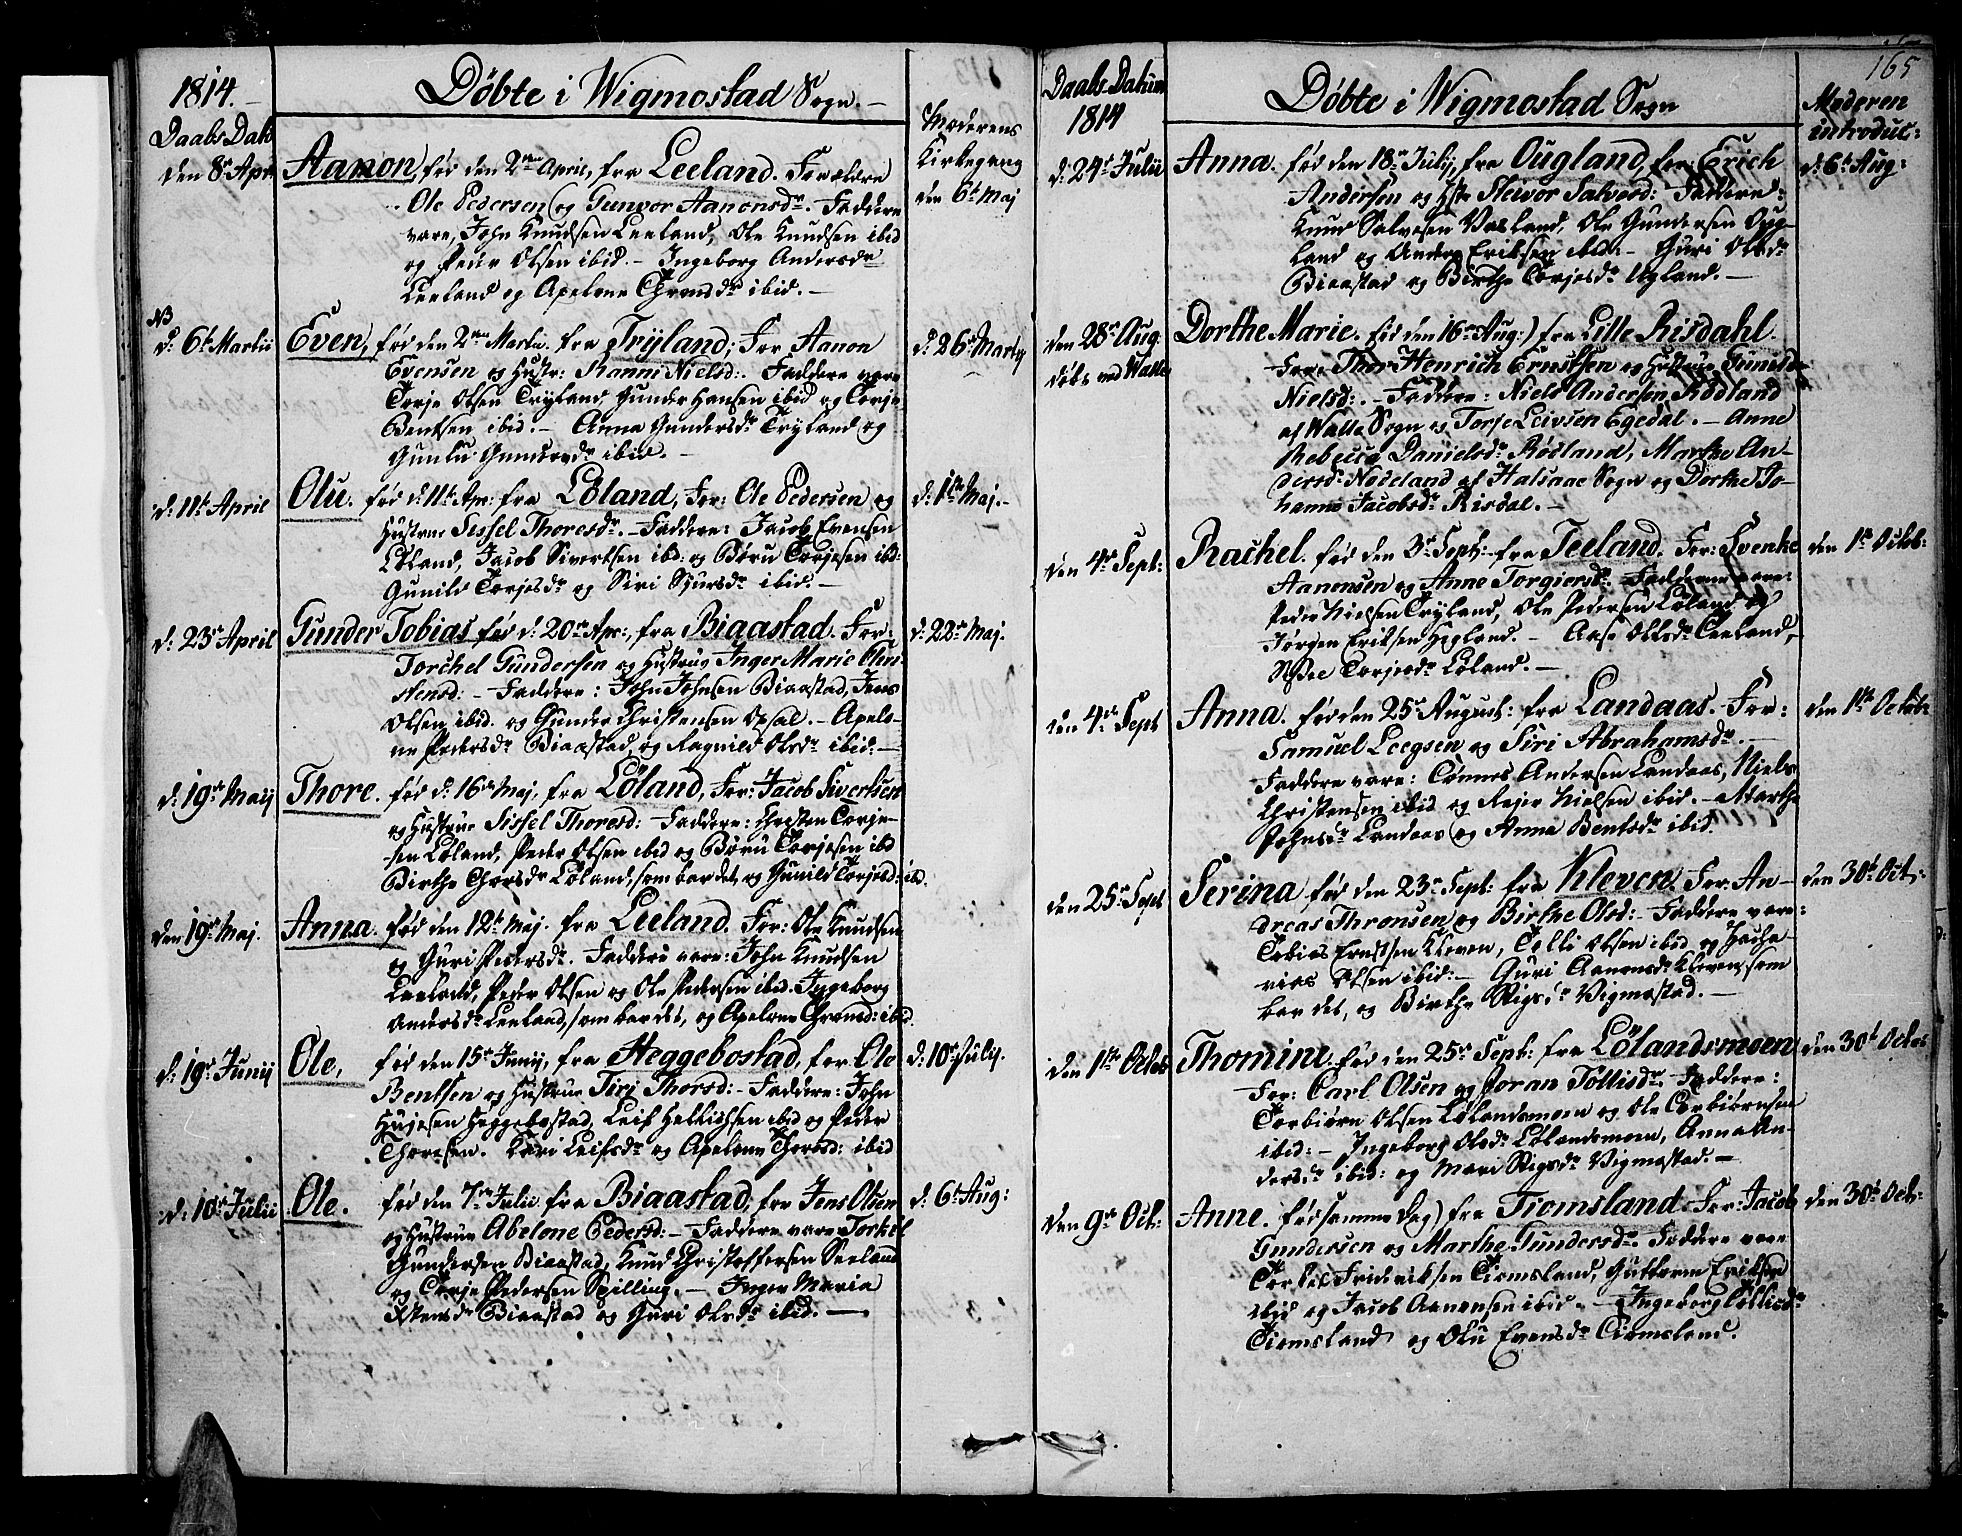 1814.
Daabs Dat:
Døbte i Wigmostad Sogn.
Moderens
Kirkegang
den 8de Apr:
Aanon, fød den 2den April, fra Leeland. Forældre
Ole Pedersen og Gunvor Aanonsdr. Faddere
vare, John Knudsen Leeland, Ole Knudsen ibid
og Peder Olsen ibid. – Ingeborg Andersdr
Leeland og Apelone Thronsdr ibid. –
den 6t Maj
NB
d: 6t Martii
Even, fød den 2den Martii fra Tryland; For Aanon
Evensen og Hustr: Ranni Nielsd:. Faddere vare
Torje Olsen Tryland Gunder Hansen ibid og Torje
Bentsen ibid. – Anna Gundersdr Tryland og
Gunlu Gundersdr ibid. –
d: 26de Martij
d: 11t April
Olu. fød d: 11t Apr: fra Løland, For: Ole Pedersen og
Hustrue Sissel Thoresdr. – Faddere: Jacob Evensen
Løland, Jacob Sivertsen ibid: og Børu Torjesen ib:
Gunild Torjesdr og Siri Sjursdr ibid. –
d: 1ste Maj. –
d: 23de April
Gunder Tobias fød d: 20de Apr:, fra Biaastad. For:
Torchel Gundersen og Hustrue Inger Marie
Stensd: – Faddere: John Johnsen Biaastad, Jens
Olsen ibid. og Gunder Christensen Opsal. – Apelo-
ne Pedersdr Biaastad og Ragnild Olsdr ibid: –
d: 22de Maj.
d: 19de Maij
Thore. fød d: 16de Maj, fra Løland, For: Jacob Sivertsen
og Hustrue Sissel Thoresd: Faddere: Torje-
sen Løland, Peder Olsen ibid og Børu Torjesen ibd
Birthe Thorsdr Løland, som bar det, og Gunild Torjesd: ibd.
den 19de Maj.
Anna. fød den 12t Maj. fra Leeland. For: Ole Knudsen
og Guri Pedersdr. Faddere vare: John Knudsen
Leeland, Peder Olsen og Ole Pedersen ibid. Ingeborg
Andersdr Leeland, som bar det, og Apelone Thronsd: ibid.
d: 19de Junij
Ole, fød den 15de Junij, fra Heggebostad, for Ole
Bentsen og Hustrue Siri Thorsd: – Faddere: John
Heggebostad, Leif ibid og Peder
Thoresen. Kari Leifsdr og Apelone Thoresd: ibid
d: 10de July.
d: 10de Julii
Ole. fød den 7de Julii fra Biaastad, for Jens Olsen
og Hustrue Abelone Pedersd: – Faddere vare Torkel
Gundersen Biaastad, Knud Christoffersen Leeland
og Torje Pedersen Spilling. – Inger Maria
Stensdr Biaastad og Guri Olsdr ibid. –
d: 6t Aug:
165
Daabs Datum
1814
Døbte i Wigmostad Sogn
Moderen
introduc:
d: 24de Julii
Anna. fød den 18de July, fra Ougland, for Erich
Andersen og Hstr Steivor Salvesd: Faddere:
Knud Salvesen Vasland, Ole Gundersen Oug-
land og Anders Eriksen ibid. – Guri Olsdr
Biaastad og Birthe Torjesdr Ugland. –
d: 6t Aug:
den 28de Aug:
døbt ved Walle
Dorthe Marie. fød den 16de Aug:) fra Lille Risdahl.
For: Thor Henrich Ernstsen og Hustrue Gunild
Nielsd:. – Faddere: Niels Andersen Rødland
af Walle Sogn og Torje Leivsen Egedal. – Anne
Rebecca Danielsdr Røsland, Marthe An-
dersdr Nødeland af Halsaae Sogn og Dorthe Jo-
hanne Jacobsdr Risdal. –
den 4de Sept:
Rachel. fød den 3de Sept: fra Teeland. For: Svenke
Aanonsen og Anne Torgiersdr. Fadderne vare:
Peder Nielsen Tryland, Ole Pedersen Løland og
Jørgen Eriksen Høgland. – Aase Olsdr Leeland,
Torjesdr Løland. –
den 1ste Octob:
den 4de Sept
Anna. fød den 25de August: fra Landaas. For:
Samuel Leegsen og Siri Abrahamsdr. –
Faddere vare: Tønnes Andersen Landaas, Niels
Christensen ibid og Rejer Nielsen ibid. – Marthe
Johnsdr Landaas og Anna Bentsdr ibid.
den 1ste Octobr
den 25de Sept
Serina fød den 23de Sept: fra Kleven. For: An-
dreas Thronsen og Birthe Olsd: – Faddere vare:
Tobias Ernstsen Kleven, Tolli Olsen ibid og Zacha-
rias Olsen ibid: – Guri Aanonsdr Kleven, som
bar det, og Birthe Stigsdr Vigmostad. –
den 30t Oct:
den 1ste Octob
Thomine fød den 25de Sept: fra Lølandsmoen
For: Carl Olsen og Joran Tollisdr. Faddere:
Torbiørn Olsen Lølandsmoen og Ole Torbiørnsen
ibid: – Ingeborg Olsdr Lølandsmoen, Anna An-
dersdr ibid: og Mari Stigsdr Vigmostad. –
den 30t Octob
den 9de Oct:
Anne. fød samme Dag) fra Tiomsland For: Jacob
Gundersen og Marthe Gundersdr. Faddere vare
Torkel Frideriksen Tiomsland, Guttorm Eriksen
ibid og Jacob Aanonsen ibid. – Ingeborg Tollisdr
Tiomsland og Olu Evensdr Tiomsland.
den 30t Oct: